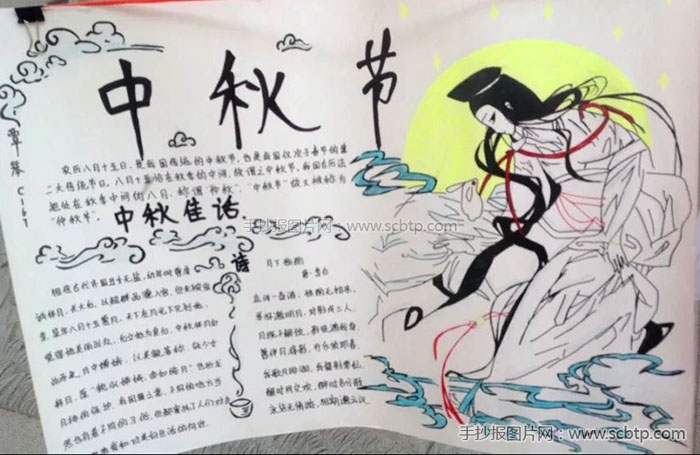 中秋节
覃琴 C167
农历八月十五日,是我国传统的中秋节,也是我国仅次于春节的第
二大传统节日。八月十五恰在秋季的中间,故谓之中秋节。我国古历法
把处在秋季中间的八月,称谓“仲秋”,“中秋节”故又被称为
“仲秋节”。
手抄报图片网:www.scbtp.com
中秋佳话
相传古代齐国丑女无盐,幼年时曾虔
诚拜月,长大后,以
入宫,但未被宠
幸。某年八月十五赏月,天子在月光下见到她,
觉得她美丽出众,后立她为皇后,中秋拜月由
此而来。月中嫦娥,以美貌著称,故少女
拜月,愿“貌似嫦娥,面如皓月”
诗
月下独酌
唐·李白
花间一壶酒,独酌无相亲。
举杯邀明月,对影成三人。
月既不解饮,影徒随我身。
暂伴月将影,行乐须及春。
我歌月徘徊,我舞影零乱。
醒时同交欢,醉时各分散
永结无情游,相期邈云汉
手抄报图片网:www.scbtp.com